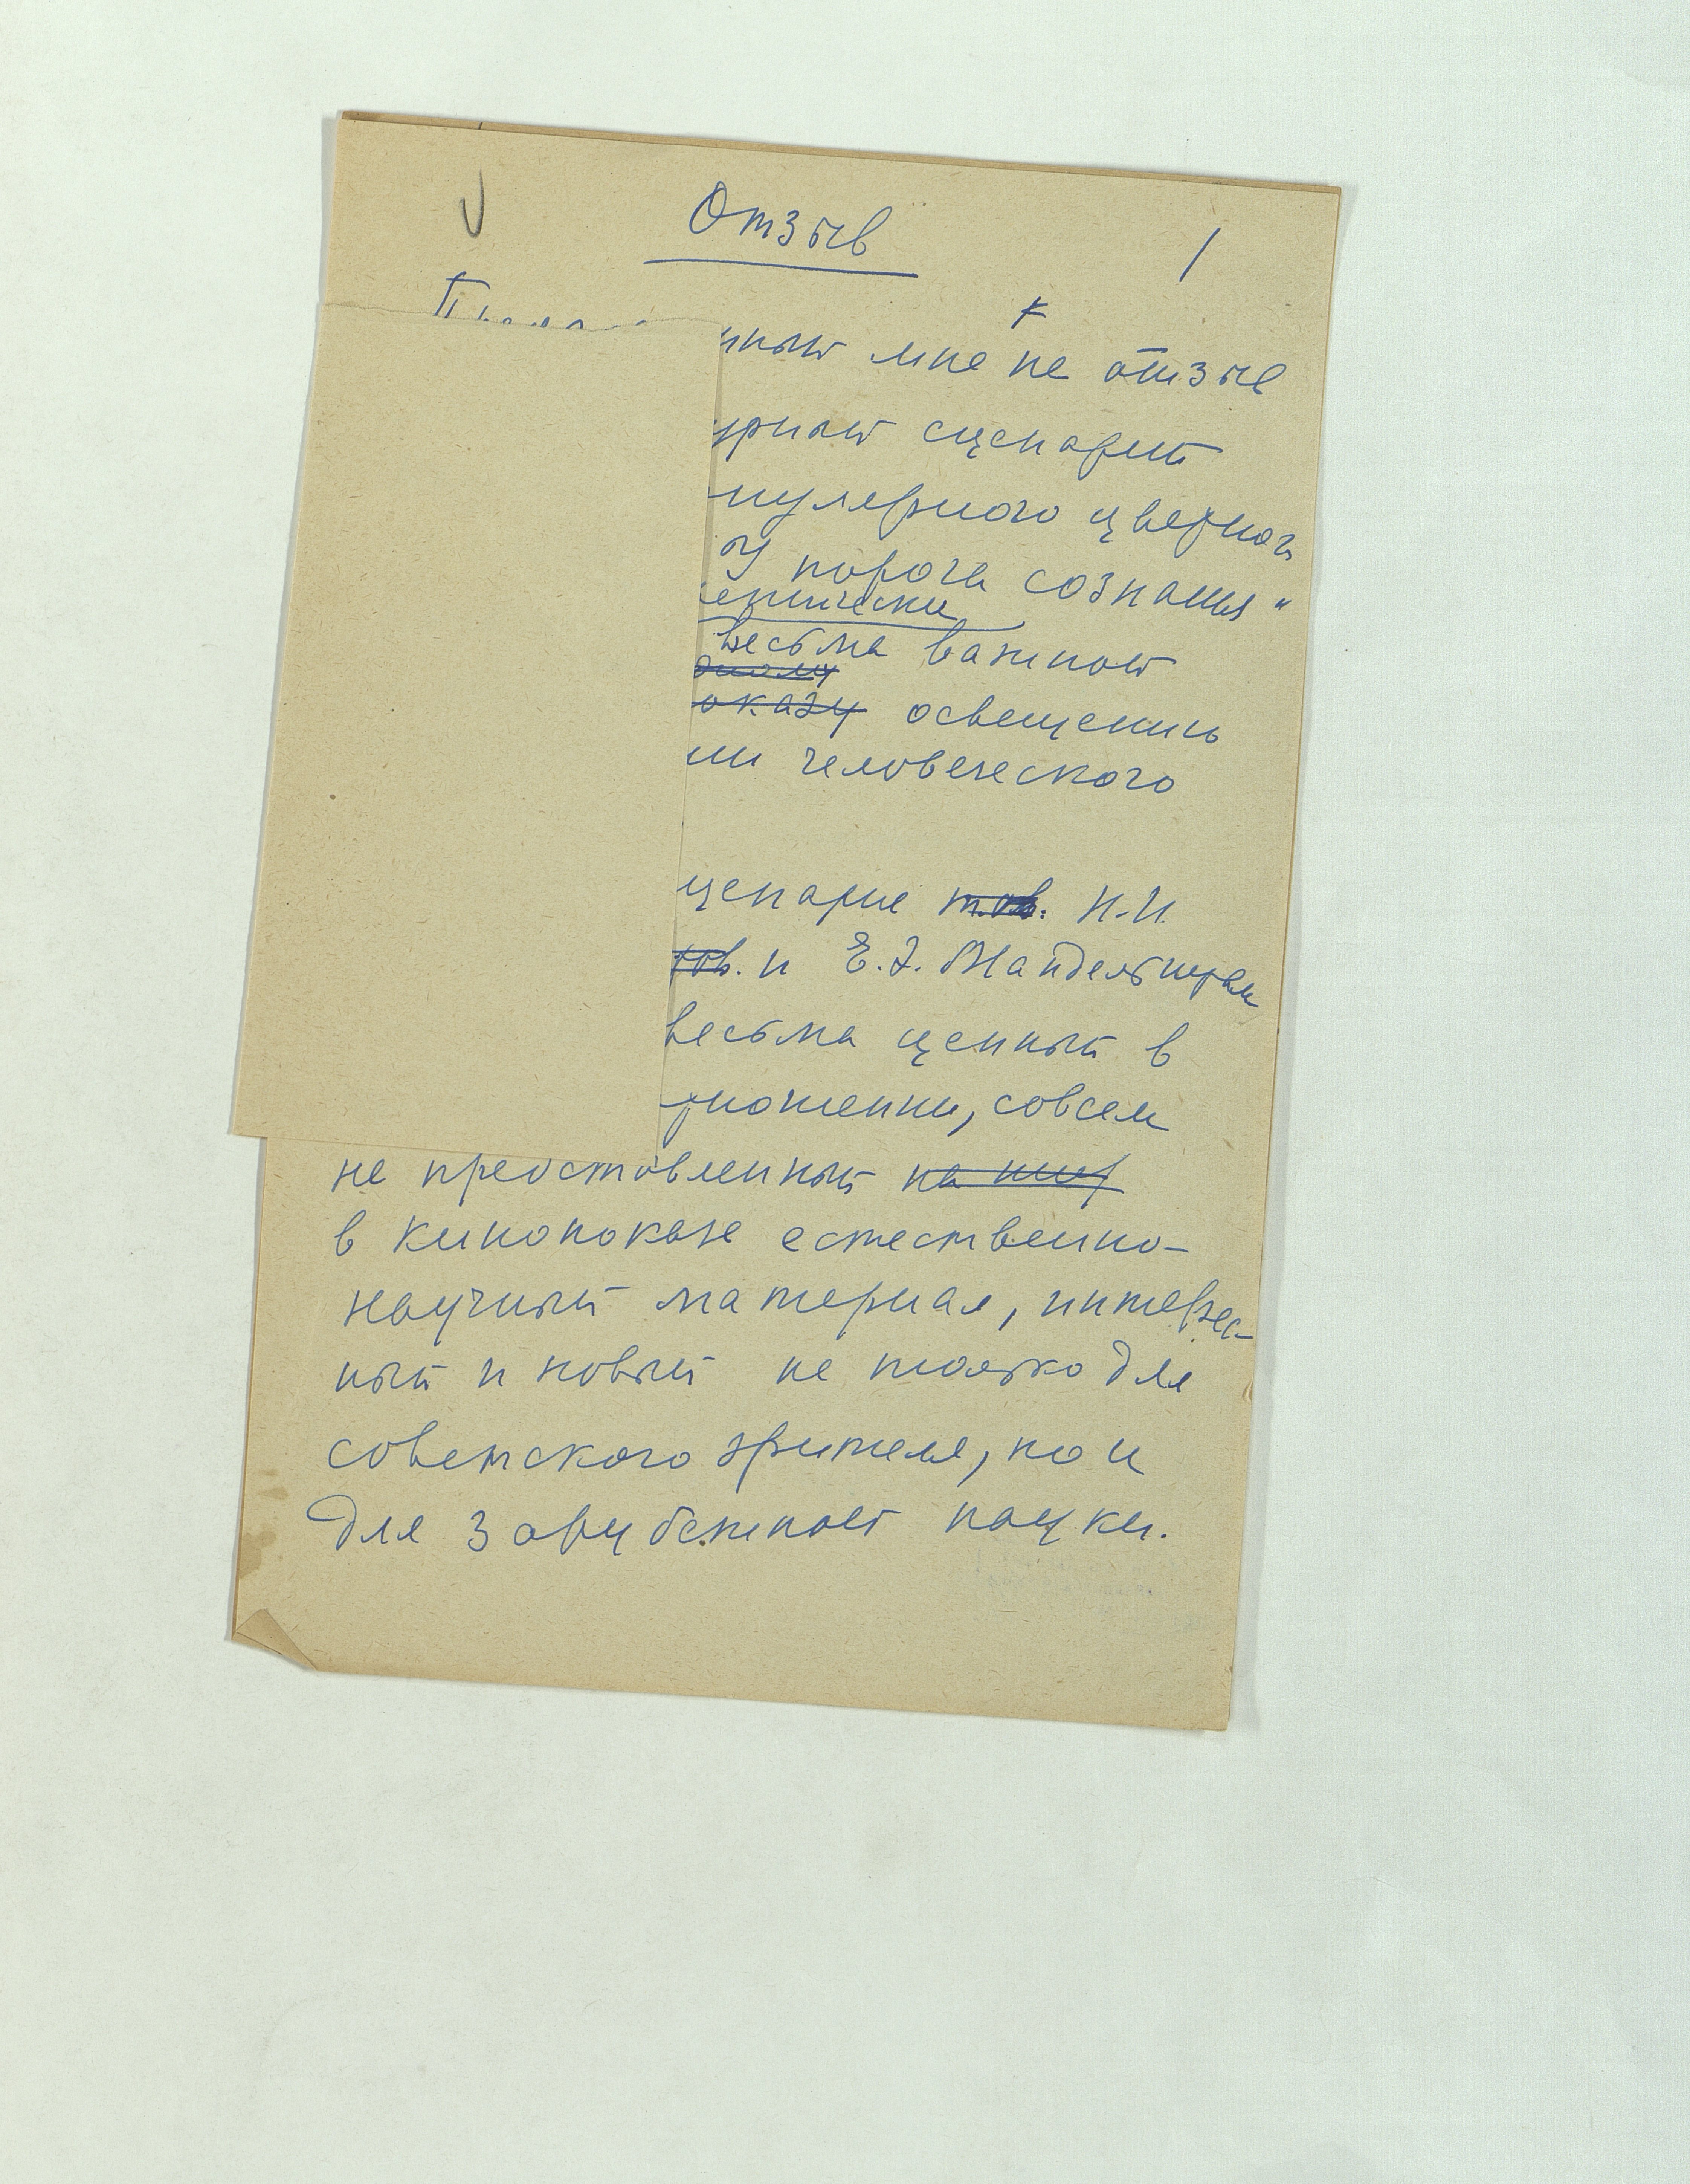 Отзыв
1
нный мне на отзыв
урный сценарий
пулярного цветного
У порога сознания"
весьма важной
оказу освещению
ии человеческого
ценарие тов. Н.Н.
тов. и Е.Э. Мандельштам
весьма ценный в
ношении, совсем
не представленный
в кинопоказе естественно-
научный материал, интерес-
ный и новый не только для
советского зрителя, но и
для зарубежной науки.